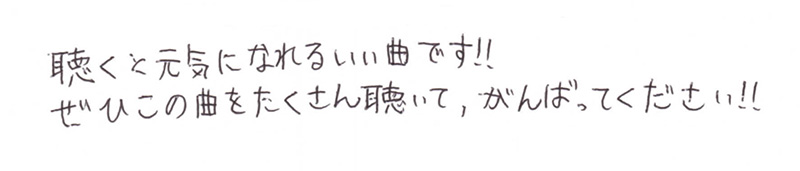 聴くと元気になれるいい曲です!!
ぜひこの曲をたくさん聴いて,がんばってください!!